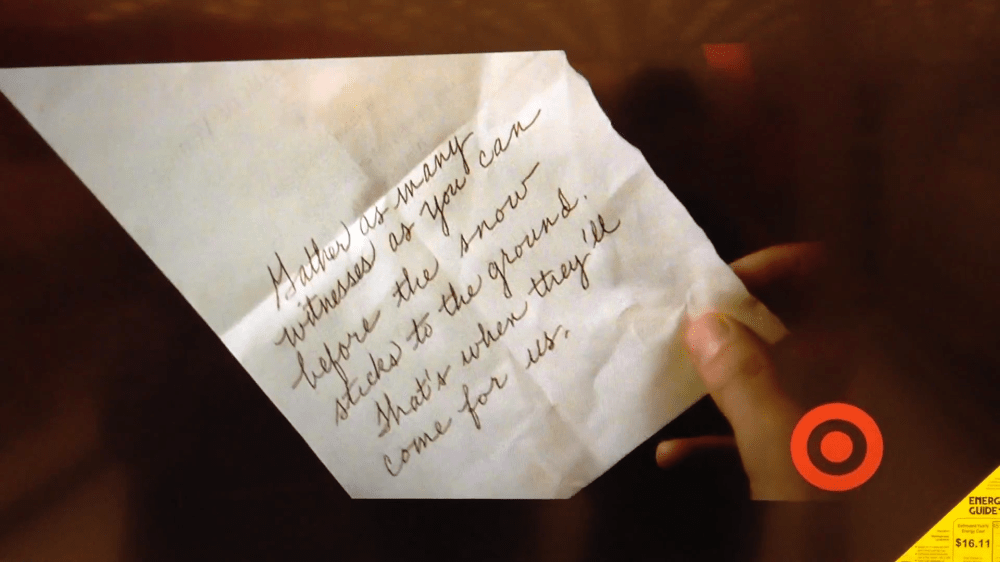 Gather as many
witnesses as you can
before the snow
sticks to the ground.
That's when they'll
come for us.
ENERG
GUIDE
$16.11